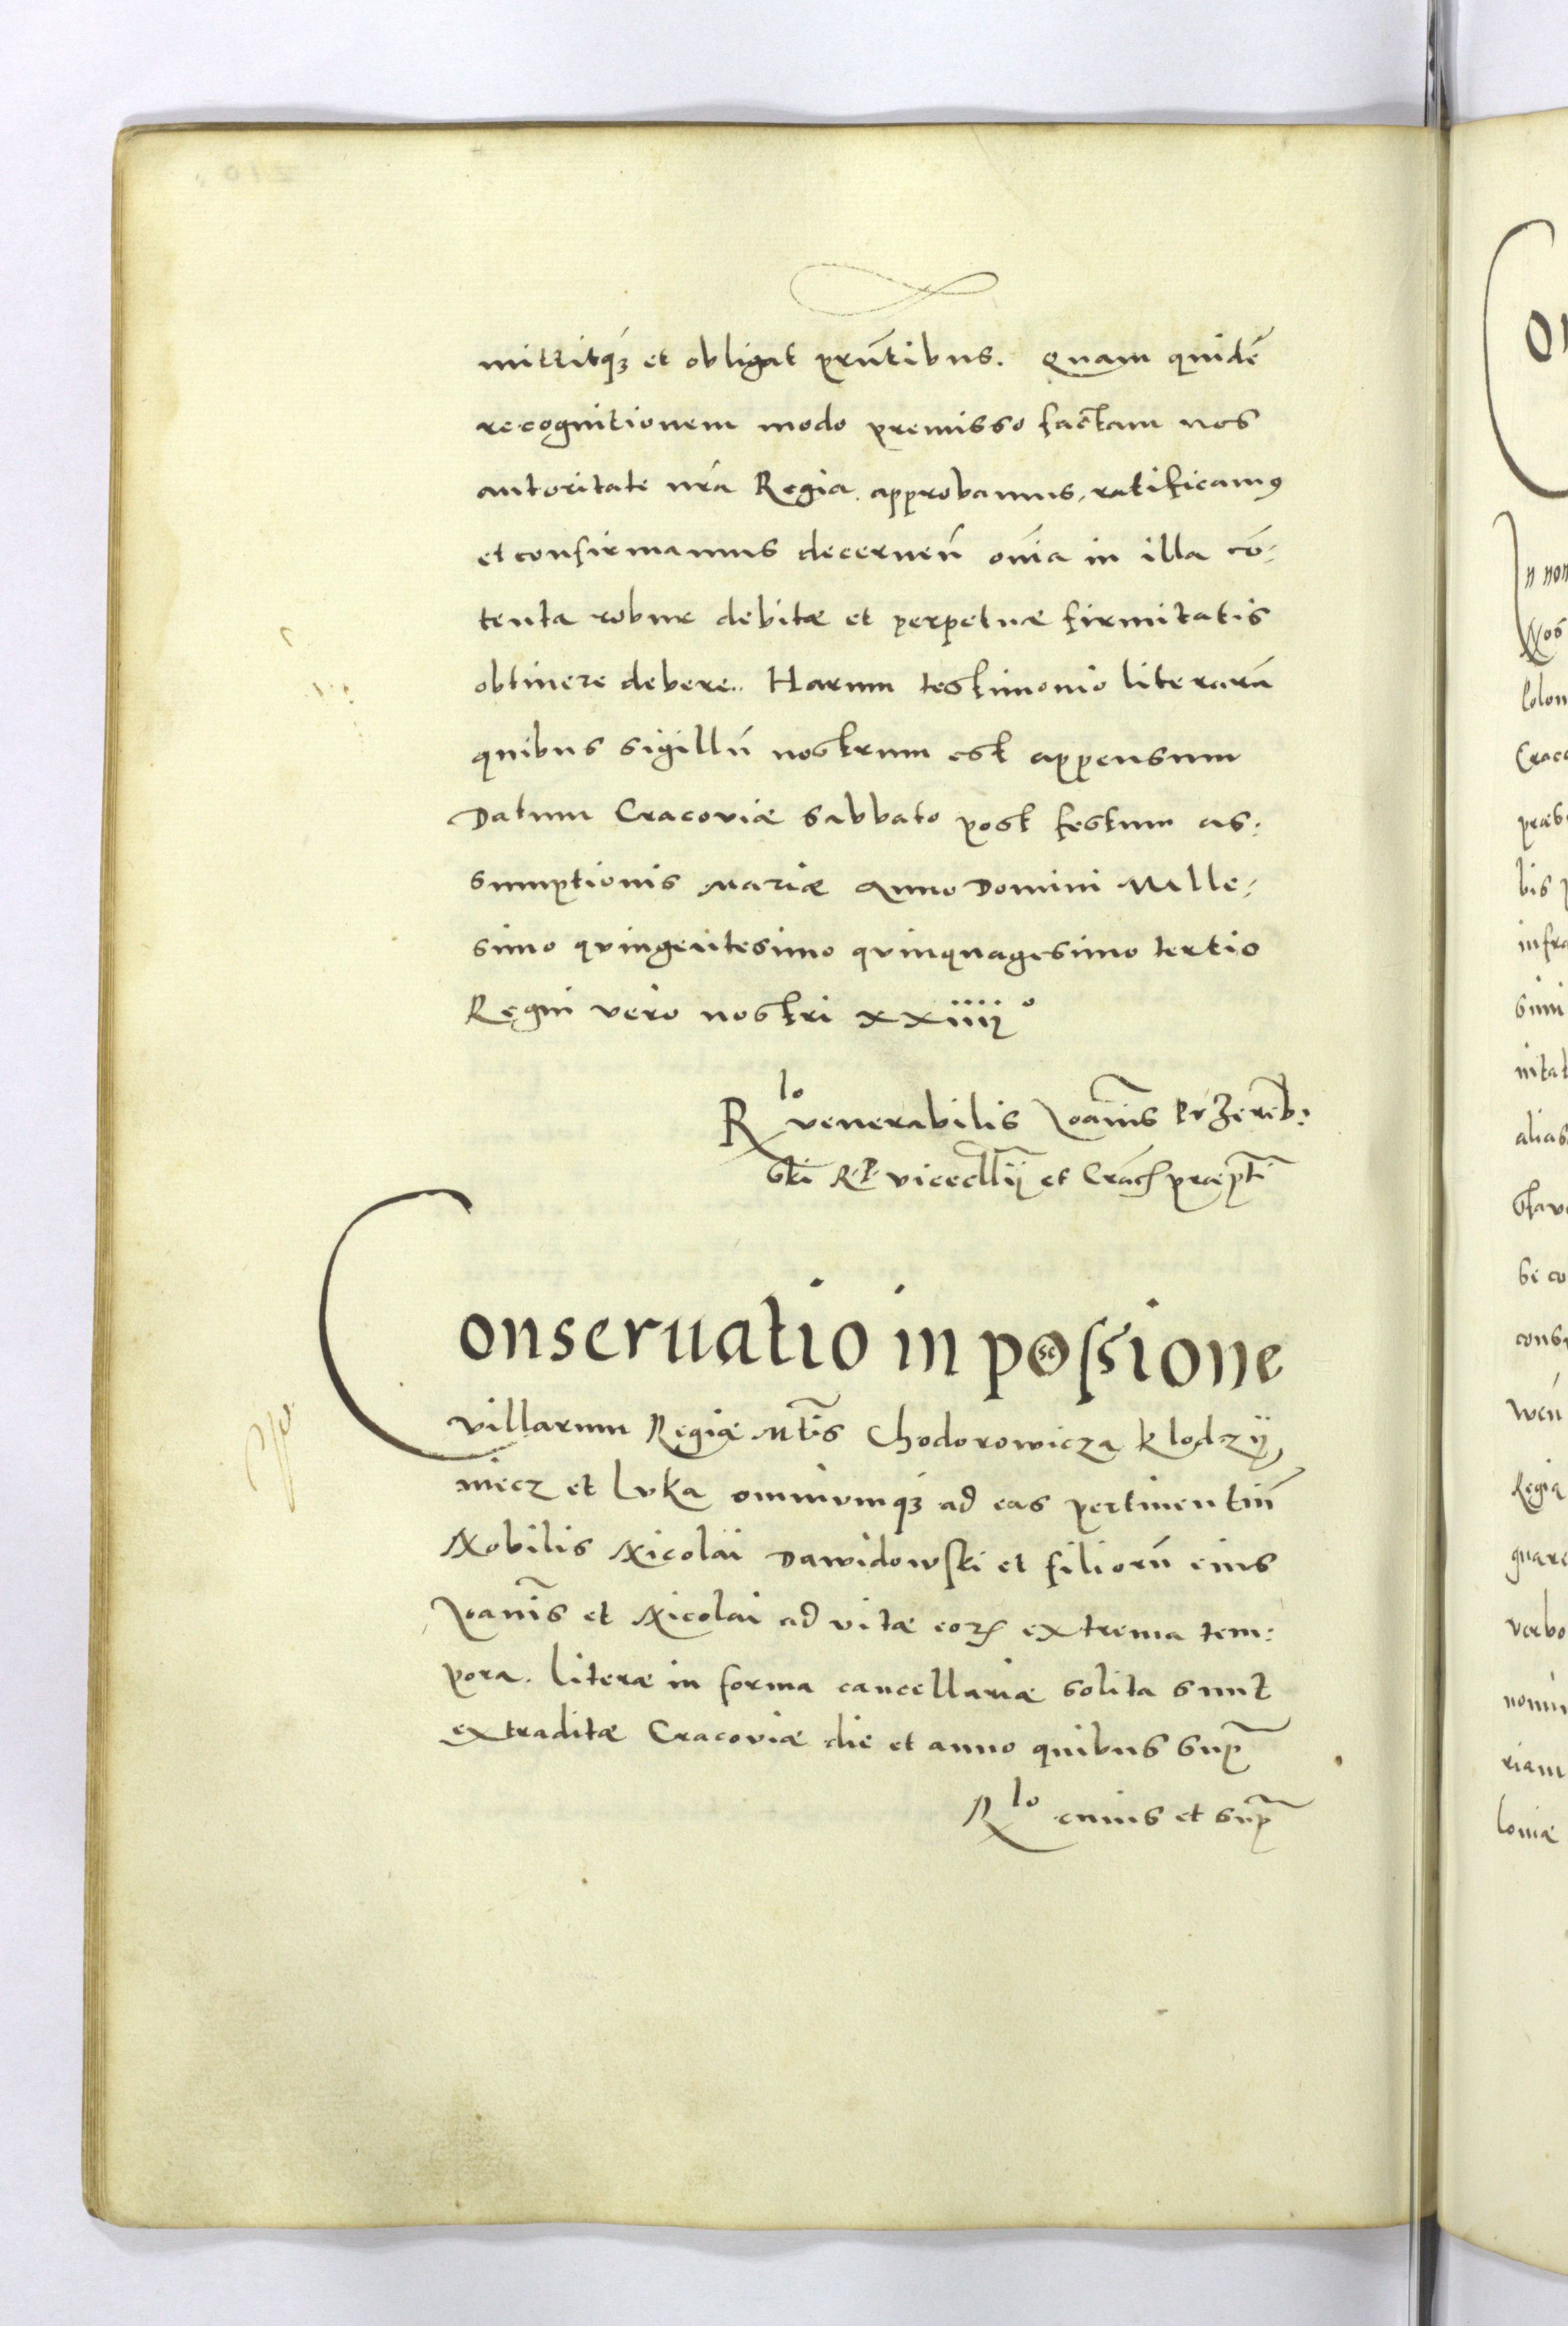 mittitq₃ et obligat prūtibus. Quam quidē
recognitionem modo premisso factam nos
autoritate nrā Regia approbamus, ratificamꝰ
et confirmamus decernen̄ oīa in illa cō-
tenta robur debitæ et perpetuæ firmitatis
obtinere debere. Harum testimonio literarū
quibus sigillū nostrum est appensum
Datum Cracoviæ Sabbato post festum as:
sumptionis Mariæ Anno Domini Mille-
simo quingentesimo quinquagesimo tertio
Regni vero nostri xxiiii°
Rlo venerabilis Joānis Przeremb:
ski R.P. vicecllīj et
Conseruatio in possessione
villarum Regiæ Mtīs Chodorowicza Klodzÿ
niecz et Luka omniumq₃ ad eas pertinentiū
Nobilis Nicolai Dawidowski et filiorū eius
Joānis et Nicolai ad vitæ eoꝝ extrema tem:
pora. Literæ in forma cancellariæ solita sunt
extraditæ Cracoviæ die et anno quibus supᷓ
Rlo cuius et supᷓ
O
n nom
Nos
Colon
Craco
præs
bis
infra
simi
nitat
alias
Slav
se co
cons
wcū
Regia
quar
verbo
nomin
riam
loniæ